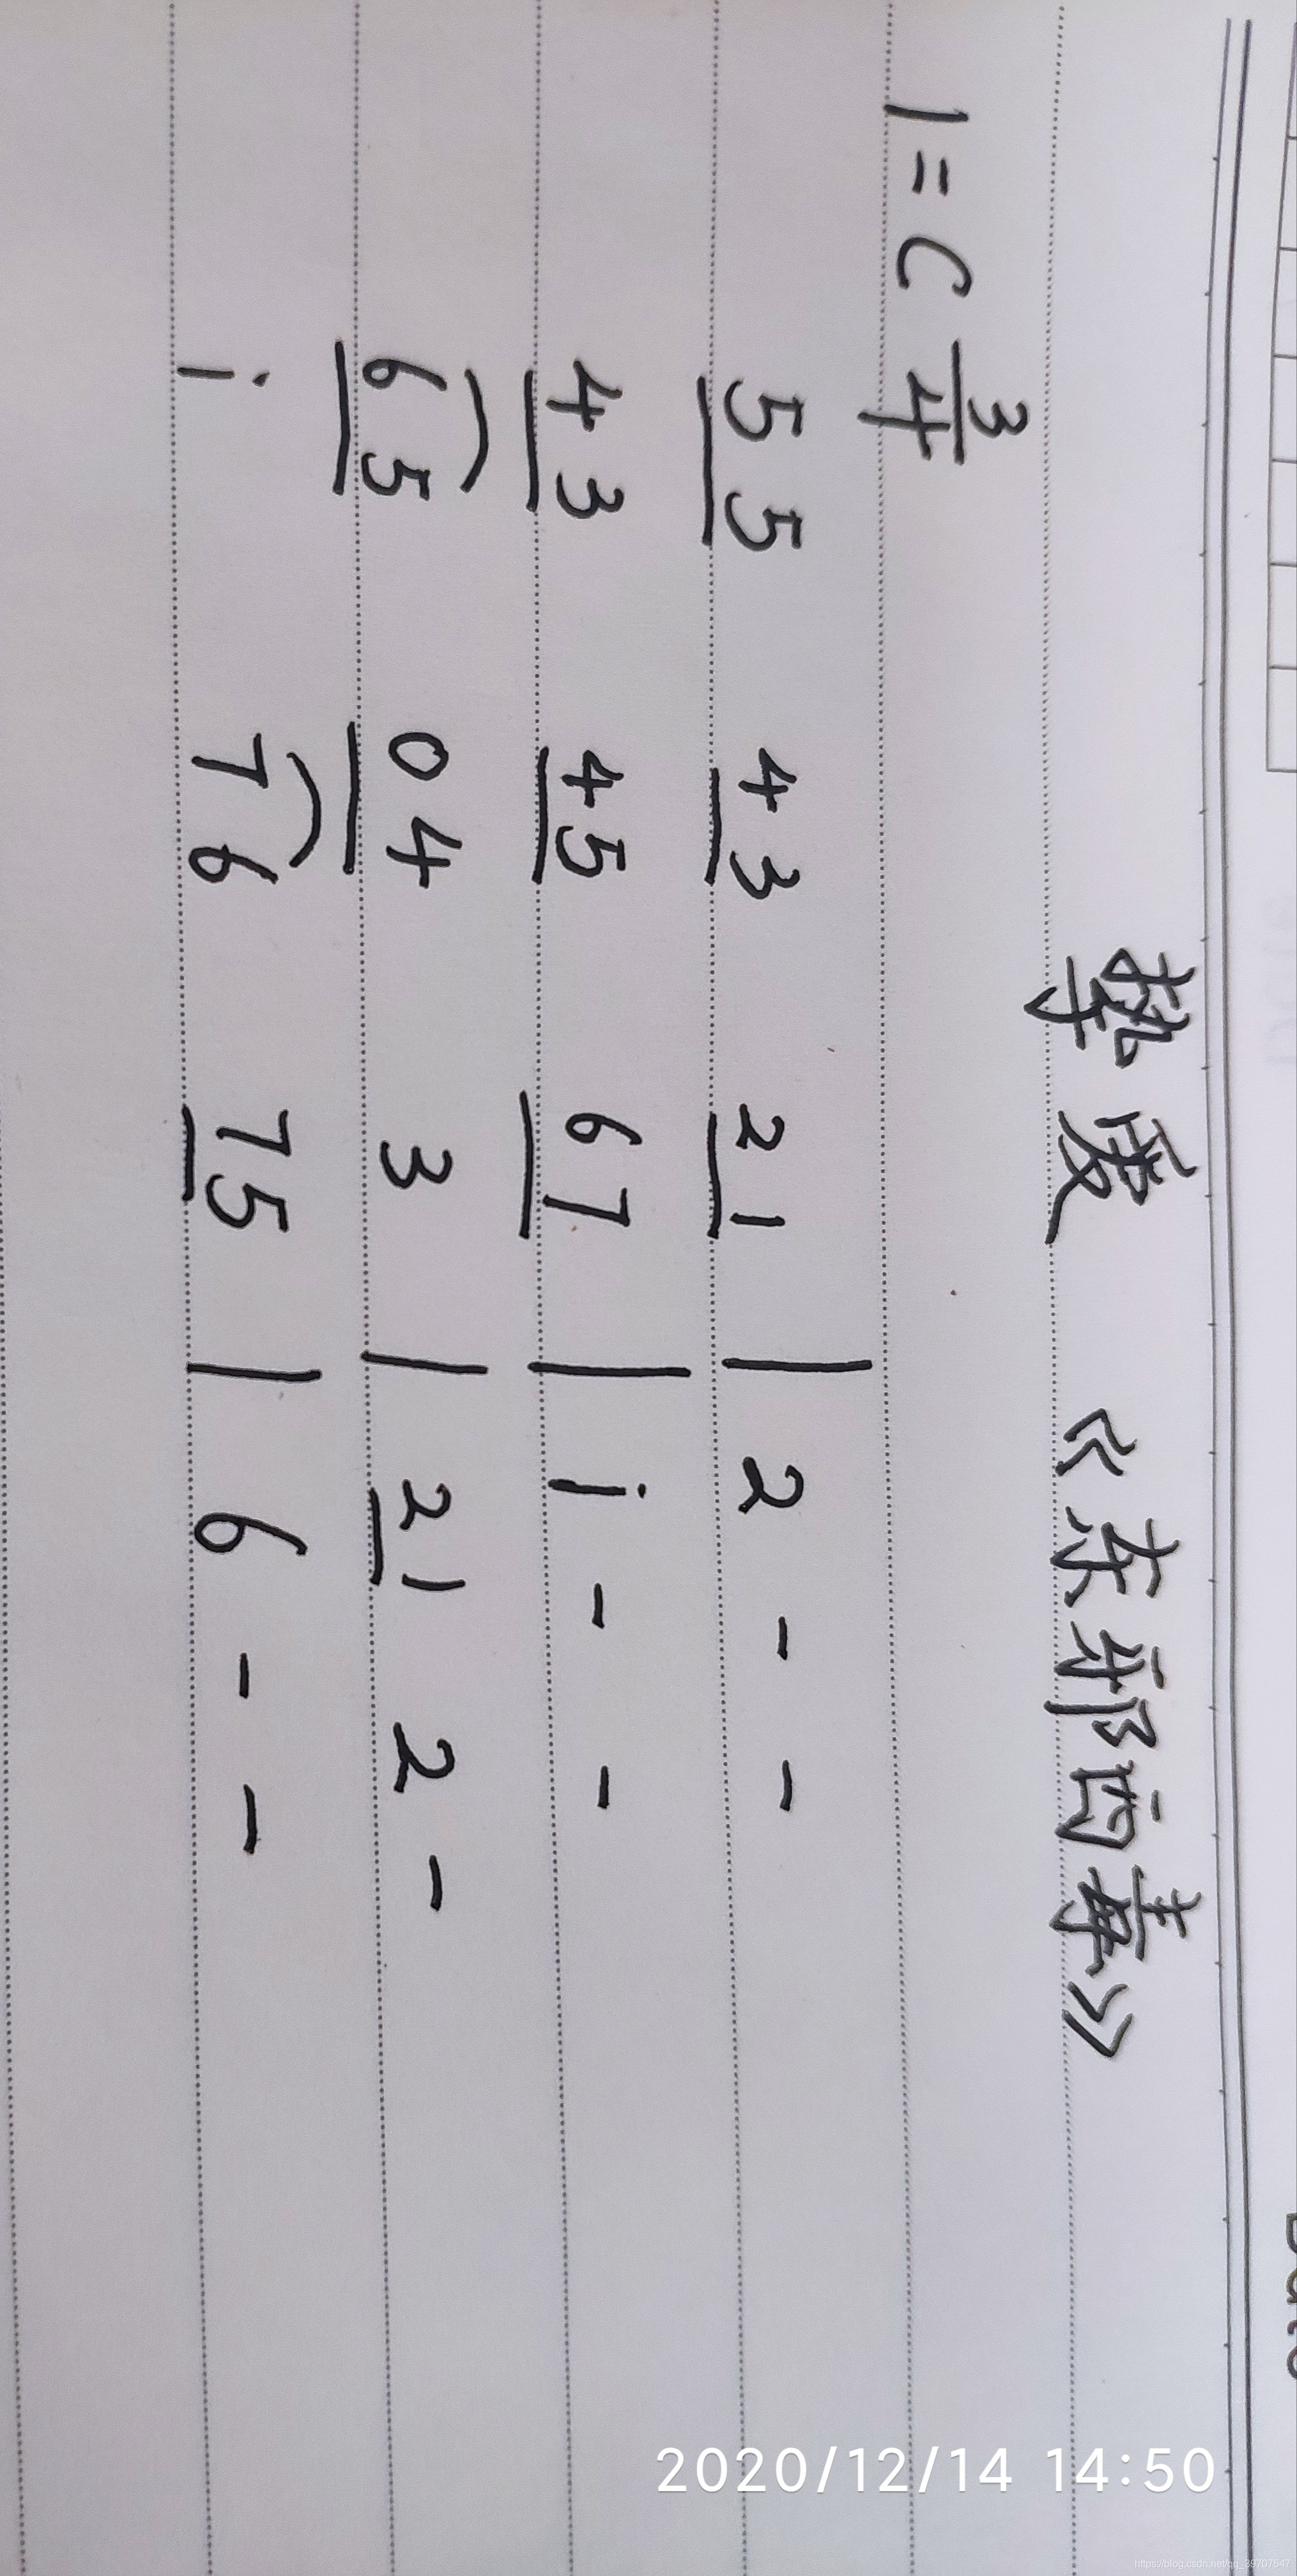 挚爱 《东邪西毒》
1=C 3/4
5 5 4 3 2 1 | 2 - -
4 3 4 5 6 7 | i - -
6 5 0 4 3 | 2 1 2 -
i 7 6 7 5 | 6 - -
2020/12/14 14:50
https://blog.csdn.net/qq_39707547